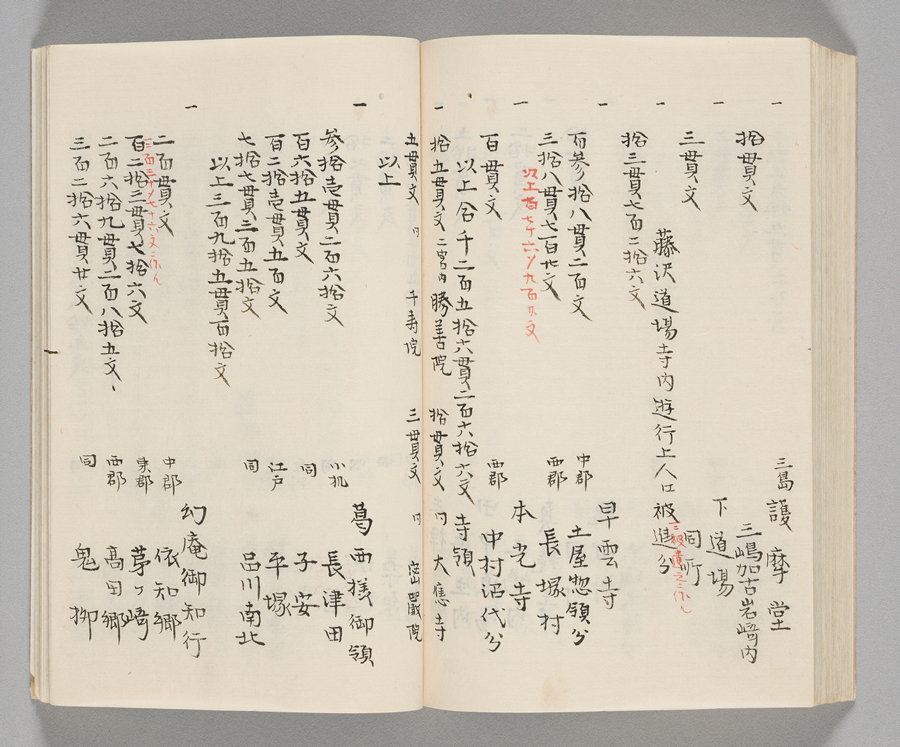 一　三島 護摩堂
拾貫文　三嶋加古岩崎内
一　下道場
三貫文　同所
一　藤沢道場寺内遊行上人口被進分
三被遣之ニ作ル
拾三貫七百二拾六文
一　早雲寺
百参拾八貫二百文　中郡　土屋惣領分
三拾八貫七百廿文　西郡　長塚村
以上百七十六メ九百廿文
一　本光寺
百貫文　西郡　中村沼代分
以上合千二百五拾六貫二百六拾六文　寺領
一　拾五貫文　二宮内　勝善院　拾貫文　同　大應寺
五貫文　同　千寿院　三貫文　同　密嚴院
以上
一　葛西様御領
参拾壱貫二百六拾文　小机　長津田
百六拾五貫文　同　子安
百二拾壱貫五百文　江戸　平塚
七拾七貫三百五拾文　同　品川南北
以上三百九拾五貫百拾文
一　幻庵御知行
二百貫文　中郡　依知郷
百二拾三貫七拾六文　東郡　茅ヶ崎
二百六拾九貫二百八拾五文、　西郡　高田郷
三百二拾六貫廿文　同　鬼柳